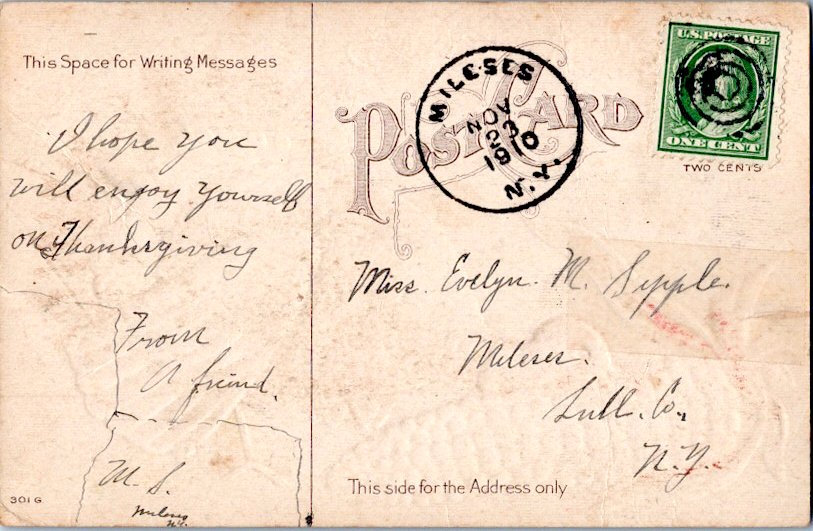 This Space for Writing Messages
I hope you
will enjoy yourself
on Thanksgiving
From
A friend.
M. S.
Mileses
N.Y.
301 G
POST CARD
MILESES
NOV
23
1910
N.Y.
U.S. POSTAGE
ONE CENT
TWO CENTS
Miss. Evelyn. M. Sipple.
Mileses.
Sull. Co.,
N.Y.
This side for the Address only